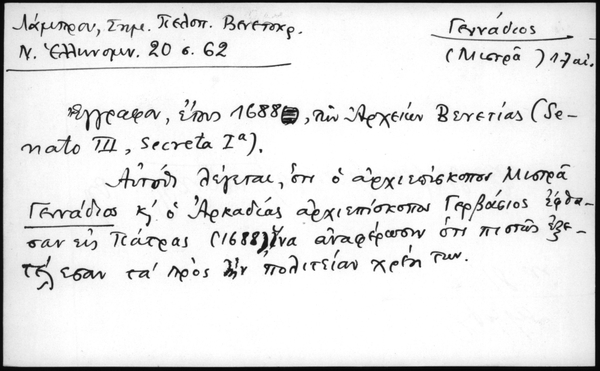 Λάμπρου, Σημ. Πελοπ. Βενετοκρ.
Ν. Ἑλληνομν. 20 σ. 62
Γεννάδιος
(Μιστρᾶ) 17 αἰ.
Ἔγγραφον, ἔτους 1688, τῶν Ἀρχείων Βενετίας (Se-
nato III, Secreta Iª).
Αὐτόθι λέγεται, ὅτι ὁ ἀρχιεπίσκοπος Μιστρᾶ
Γεννάδιος κ' ὁ Ἀρκαδίας ἀρχιεπίσκοπος Γερβάσιος ἔφθα-
σαν εἰς Πάτρας (1688) ἵνα ἀναφέρωσιν ὅτι πιστῶς ἐξε-
τέλεσαν τὰ πρὸς τὴν πολιτείαν χρέη των.